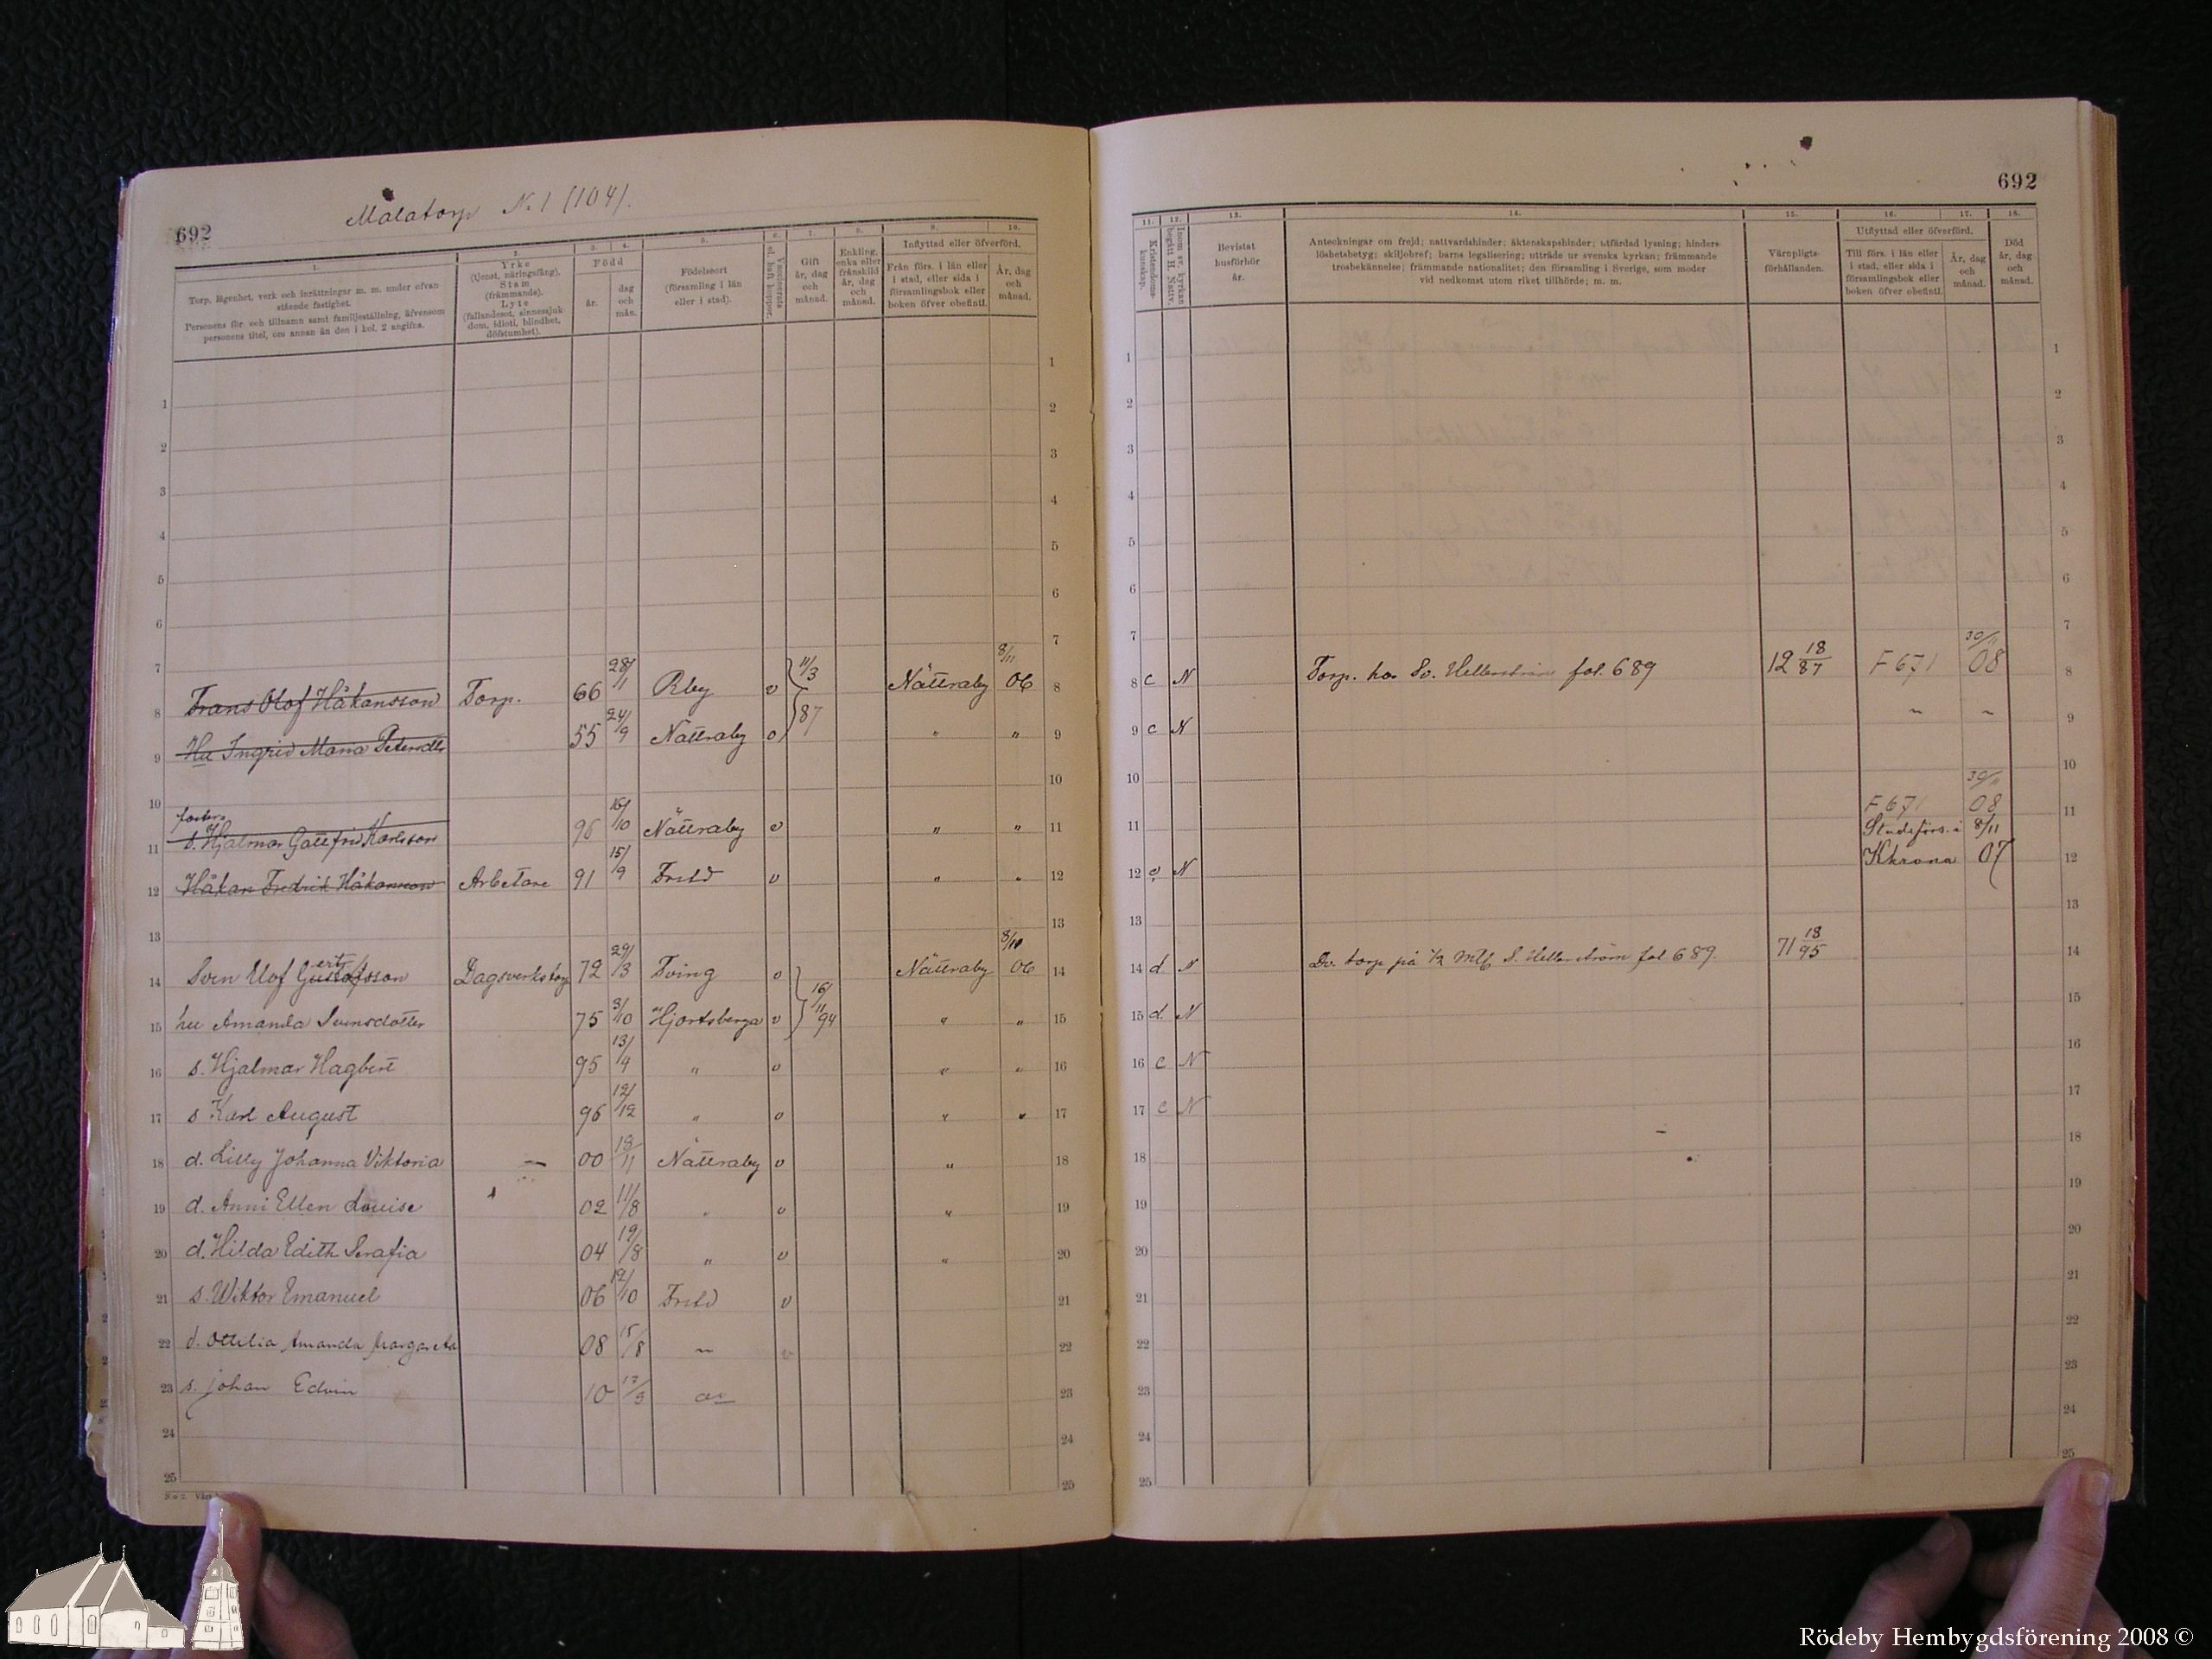 692
Målatorp N. 1 (104).
1.
Torp, lägenhet, verk och inrättningar m. m. under ofvan
stående fastighet.
Personens för- och tillnamn samt familjeställning, äfvensom
personens titel, om annan än den i kol. 2 angifna.
2.
Yrke
(tjenst, näringsfång).
Stam
(främmande).
Lyte
(fallandesot, sinnessjuk-
dom, idioti, blindhet,
döfstumhet).
3. 4.
Född
år.
dag
och
mån.
5.
Födelseort
(församling i län
eller i stad).
6.
Vaccinerats
el. haft koppor.
7.
Gift
år, dag
och
månad.
8.
Enkling,
enka eller
frånskild
år, dag
och
månad.
9. 10.
Inflyttad eller öfverförd.
Från förs. i län eller
i stad, eller sida i
församlingsbok eller
boken öfver obefintl.
År, dag
och
månad.
8 Frans Olof Håkansson Torp. 66 28/1 Rby v 11/3 87 Nättraby 8/11 06 8
9 Hu Ingrid Maria Petersdtr 55 24/9 Nättraby v " " 9
10 10
11 foster s. Hjalmar Gottfrid Karlsson 96 16/10 Nättraby v " " 11
12 Håkan Fredrik Håkansson Arbetare 91 15/9 Frstd v " " 12
13 13
14 Sven Olof Gustafsson ert Dagsverkstorp 72 29/3 Tving v 16/11 94 Nättraby 8/10 06 14
15 hu Amanda Svensdotter 75 3/10 Hjortsberga v " " 15
16 s. Hjalmar Hagbert 95 13/4 " v " " 16
17 s Karl August 96 12/12 " v " " 17
18 d. Lilly Johanna Viktoria 00 18/11 Nättraby v " 18
19 d. Anni Ellen Lovise 02 11/8 " v " 19
20 d. Hilda Edith Serafia 04 19/8 " v " 20
21 s. Wiktor Emanuel 06 12/10 Frstd v 21
22 d. Ottilia Amanda Margareta 08 15/8 " v 22
23 s. Johan Edvin 10 12/3 23
24 24
25 25
692
11.
Kristendoms-
kunskap.
12.
Inom sv. kyrkan
begått H. Nattv.
13.
Bevistat
husförhör
år.
14.
Anteckningar om frejd; nattvardshinder; äktenskapshinder; utfärdad lysning; hinders-
löshetsbetyg; skiljobref; barns legalisering; utträde ur svenska kyrkan; främmande
trosbekännelse; främmande nationalitet; den församling i Sverige, som moder
vid nedkomst utom riket tillhörde; m. m.
15.
Värnpligts-
förhållanden.
16. 17.
Utflyttad eller öfverförd.
Till förs. i län eller
i stad, eller sida i
församlingsbok eller
boken öfver obefintl.
År, dag
och
månad.
18.
Död
år, dag
och
månad.
8 c N Torp. hos Sv. Hellerström fol. 689 12 18/87 F 671 30/11 08 8
9 c N " " 9
10 10
11 F 671 30/11 08 11
Stadsförs. i 8/11
12 c N Kkrona 07 12
13 13
14 d. N Dv. torp på 1/2 mtl S. Hellerström fol 689. 71 18/95 14
15 d. N 15
16 c N 16
17 c N 17
18 18
19 19
20 20
21 21
22 22
23 23
24 24
25 25
Rödeby Hembygdsförening 2008 ©